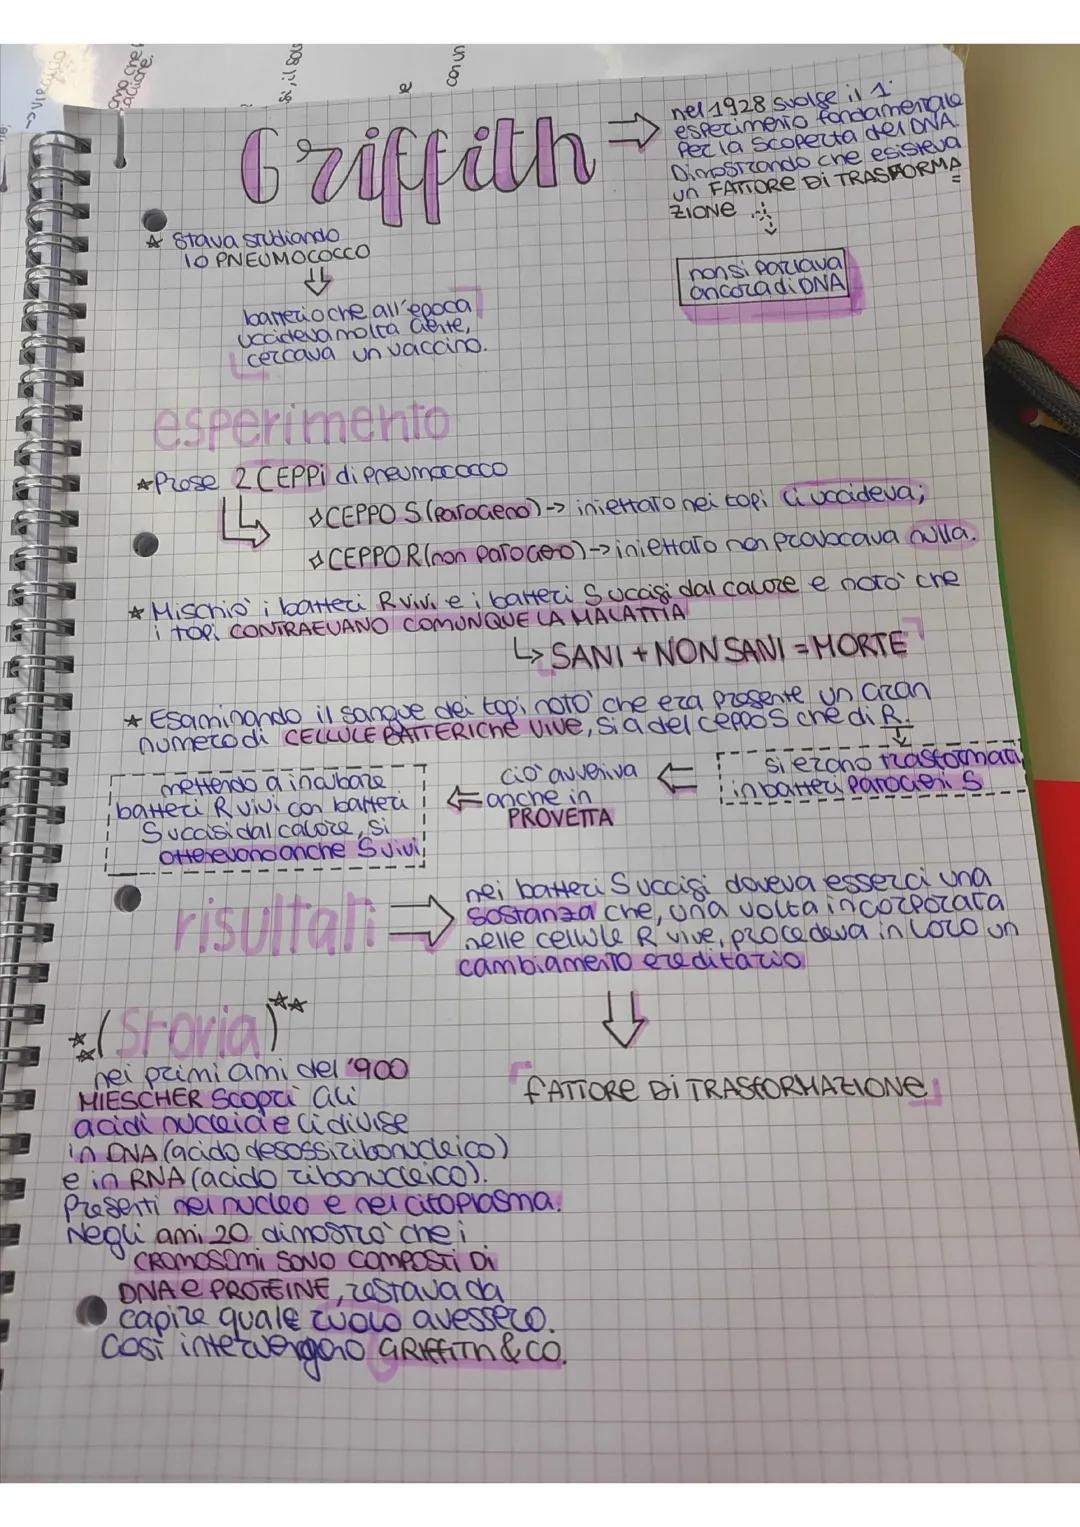 Griffith
nel 1928 svolse il 1°
esperimento fondamentale
per la scoperta del DNA.
Dimostrando che esisteva
un FATTORE Di TRASFORMA=
ZIONE
non si parlava
ancora di DNA
Stava studiando
lo PNEUMOCOCCO
batterio che all'epoca
uccideva molta gente,
cercava un vaccino.
esperimento
Prese 2 CEPPi di pneumococco
CEPPO S (patogeno) -> iniettato nei topi li uccideva;
CEPPO R (non patogeno) -> iniettato non provocava nulla.
Mischiò i batteri R vivi e i batteri S uccisi dal calore e notò che
i topi CONTRAEVANO COMUNQUE LA MALATTIA
SANI + NON SANI = MORTE
Esaminando il sangue dei topi notò che era presente un gran
numero di CELLULE BATTERICHE VIVE, sia del ceppo S che di R.
si erano trasformati
in batteri patogeni S
ciò avveniva
anche in
PROVETTA
mettendo a incubare
batteri R vivi con batteri
S uccisi dal calore, si
ottenevano anche S vivi
risultati
nei batteri S uccisi doveva esserci una
sostanza che, una volta incorporata
nelle cellule R vive, procedeva in loro un
cambiamento ereditario
FATTORE Di TRASFORMAZIONE
(Storia)
nei primi anni del '900
MIESCHER scoprì gli
acidi nucleici e li divise
in DNA (acido desossiribonucleico)
e in RNA (acido ribonucleico).
Presenti nel nucleo e nel citoplasma.
Negli anni 20 dimostrò che i
CROMOSOMi SONO COMPOSTi Di
DNA e PROTEINE, restava da
capire quale ruolo avessero.
Così intervengono GRIFFITH & CO.